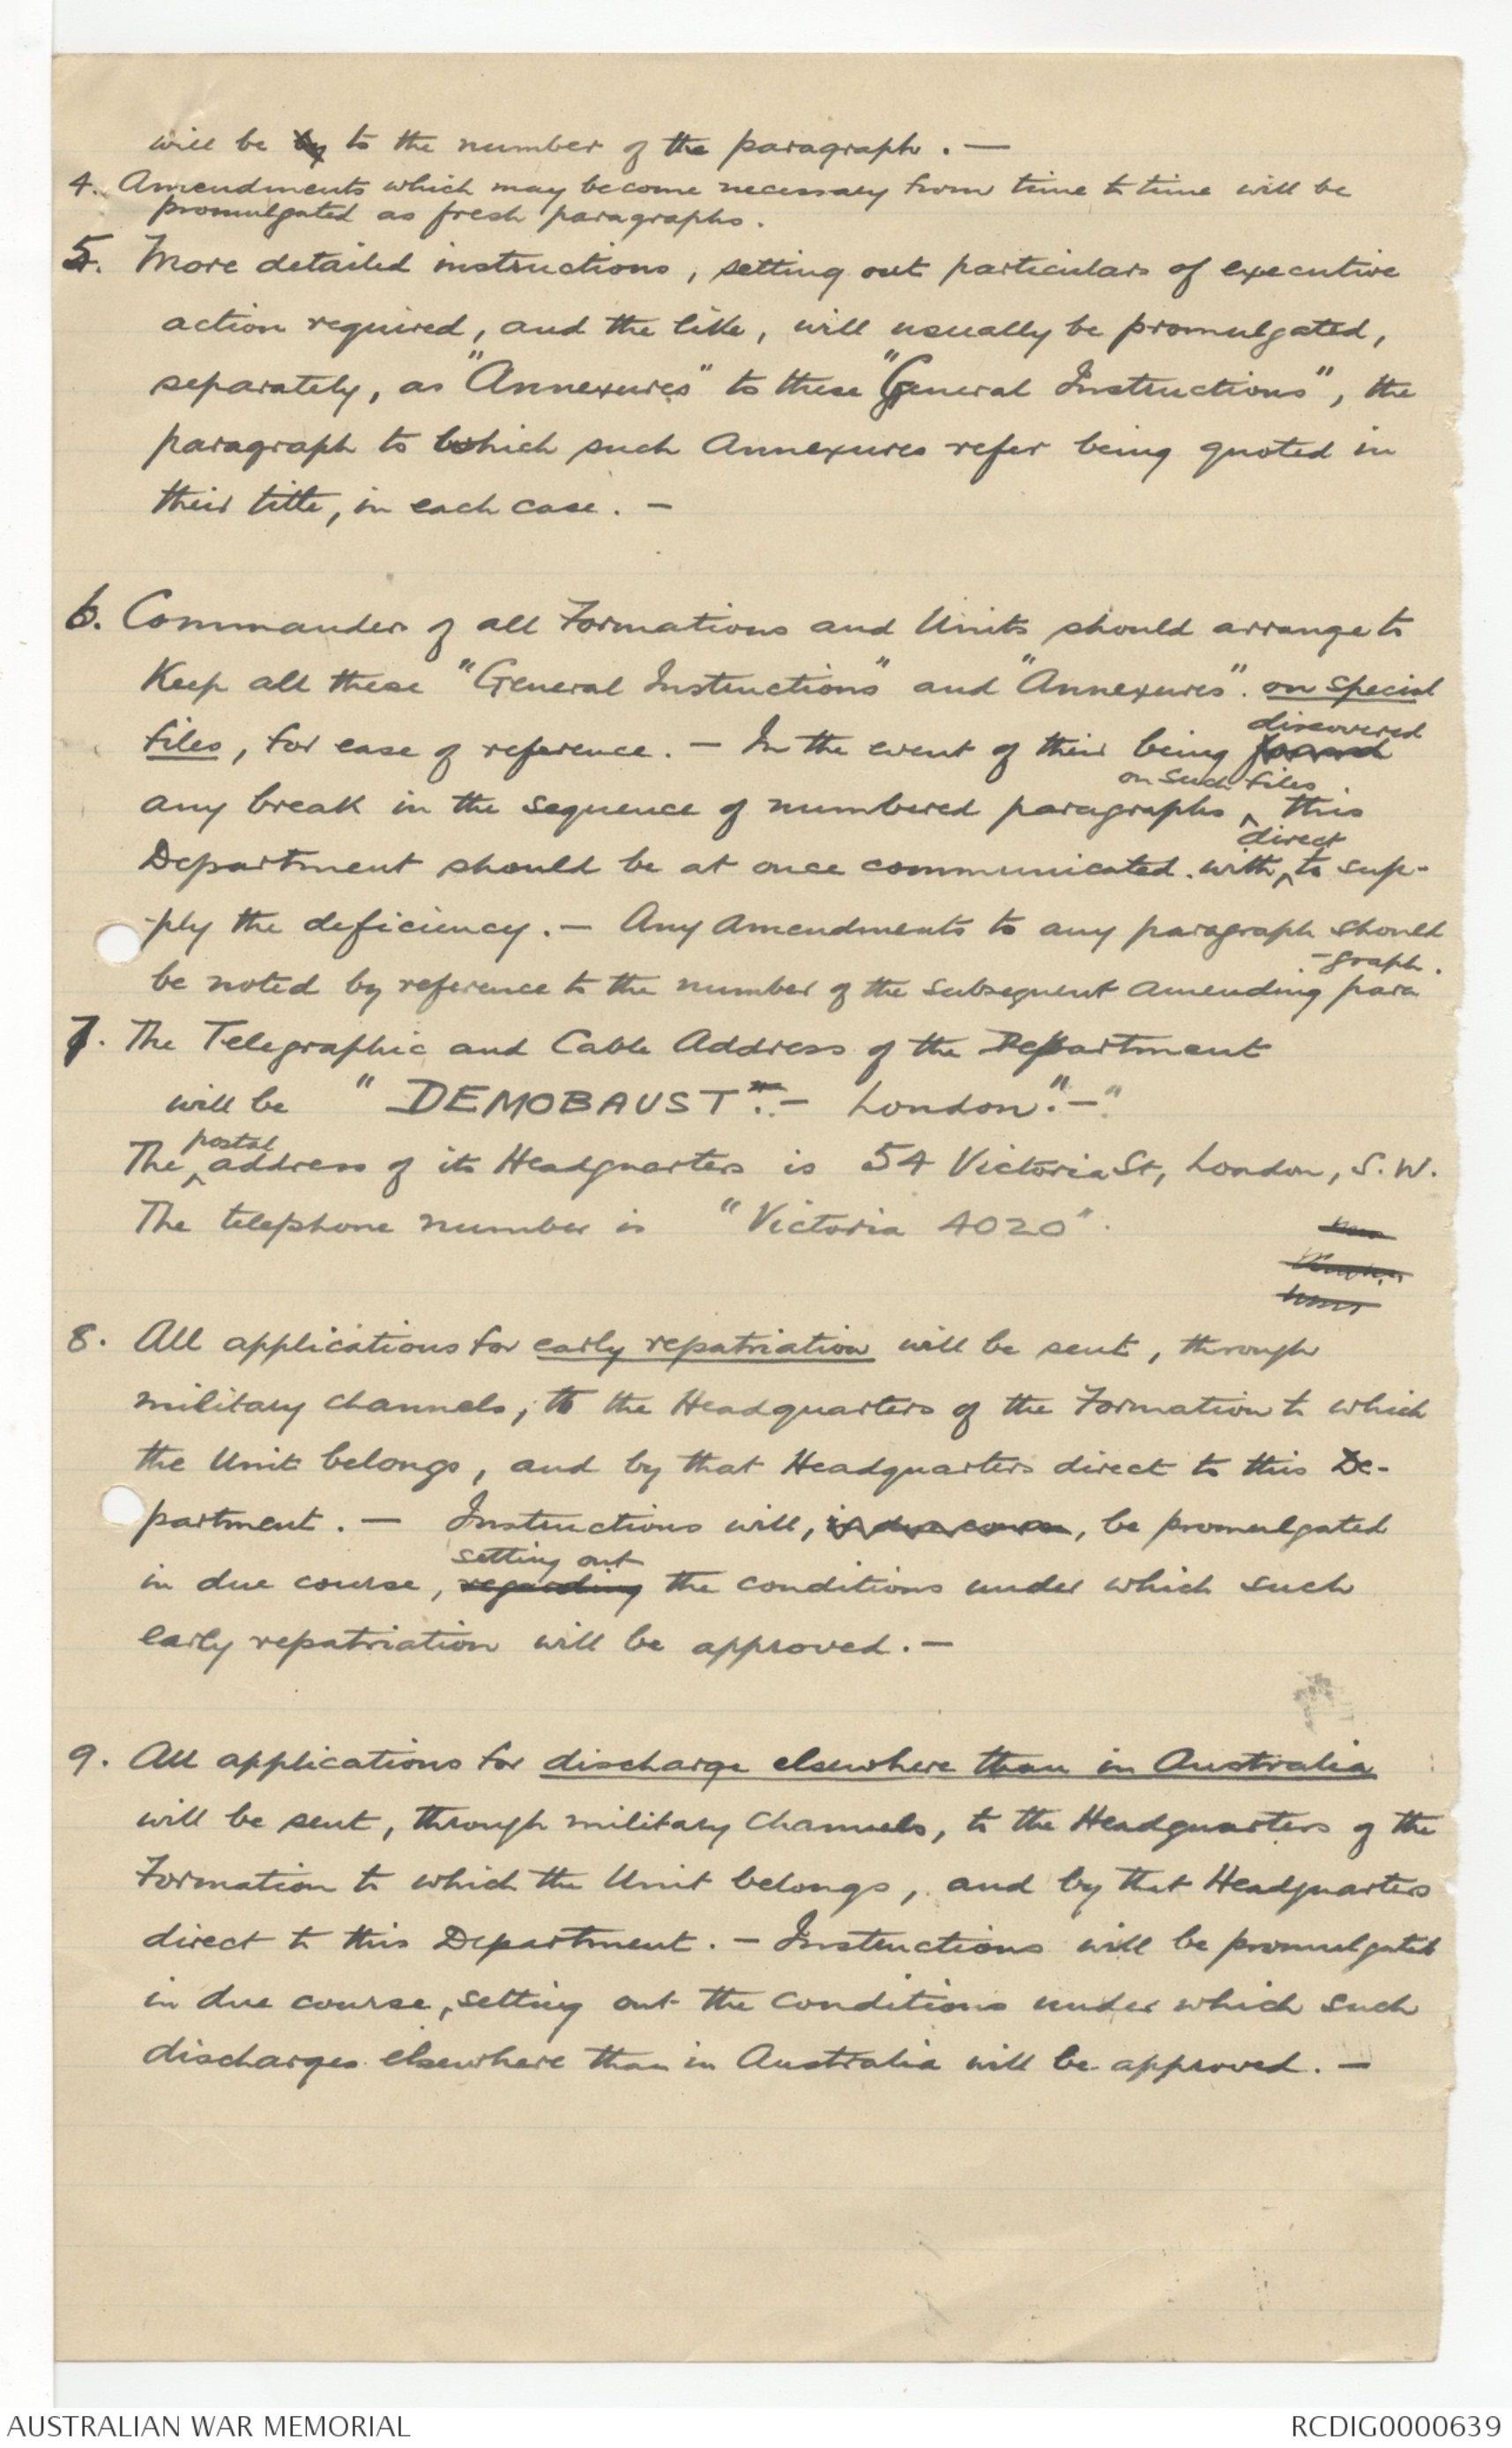 will be by to the number of the paragraph. —
4. Amendments which may become necessary from time to time will be
promulgated as fresh paragraphs.
5. More detailed instructions, setting out particulars of executive
action required, and the like, will usually be promulgated,
separately, as "Annexures" to these "General Instructions", the
paragraph to which such Annexures refer being quoted in
their title, in each case. —
6. Commanders of all Formations and Units should arrange to
Keep all these "General Instructions" and "Annexures". on special
discovered
files, for ease of reference. — In the event of their being found
on such files
any break in the sequence of numbered paragraphs ^ this
direct
Department should be at once communicated. with ^ to sup-
-ply the deficiency. — Any Amendments to any paragraph should
-graph.
be noted by reference to the number of the subsequent Amending para
7. The Telegraphic and Cable Address of the Department
will be "DEMOBAUST". — London." — "
postal
The ^ address of its Headquarters is 54 Victoria St, London, S.W.
The telephone number is "Victoria 4020".
8. All applications for early repatriation will be sent, through
military channels, to the Headquarters of the Formation to which
the Unit belongs, and by that Headquarters direct to this De-
partment. — Instructions will, in due course, be promulgated
setting out
in due course, regarding the conditions under which such
early repatriation will be approved. —
9. All applications for discharge elsewhere than in Australia
will be sent, through military channels, to the Headquarters of the
Formation to which the Unit belongs, and by that Headquarters
direct to this Department. — Instructions will be promulgated
in due course, setting out the conditions under which such
discharges elsewhere than in Australia will be approved. —
AUSTRALIAN WAR MEMORIAL
RCDIG0000639